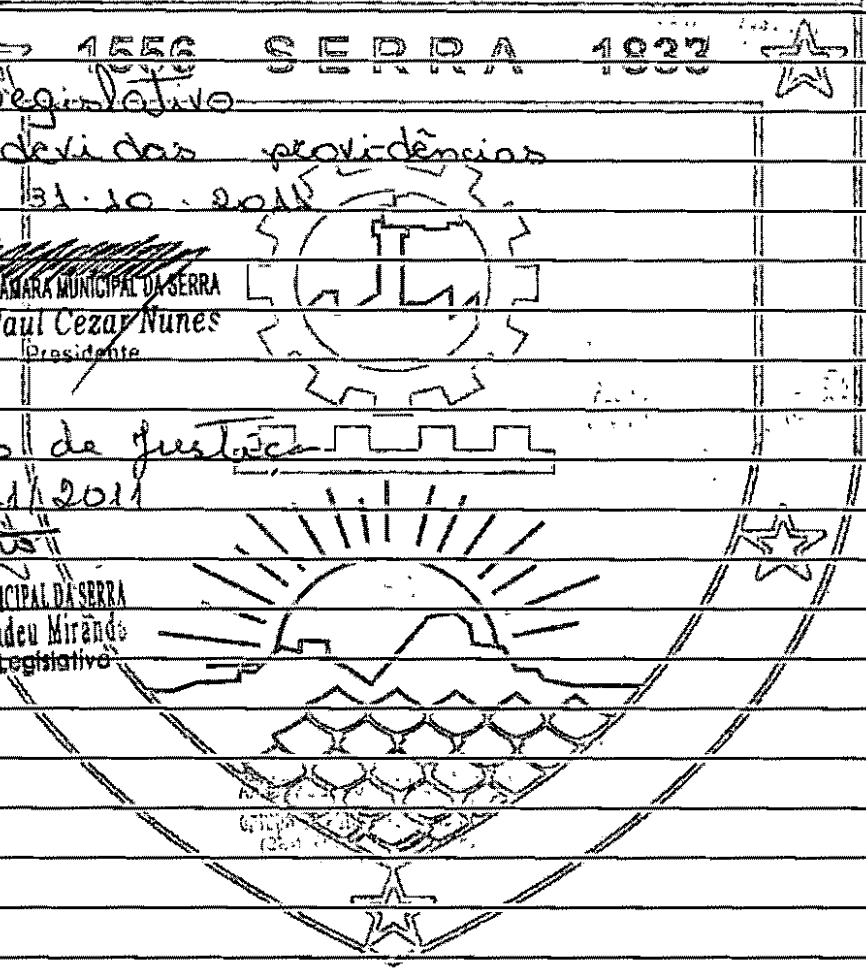 1556 SERRA 1833
Legislativo
devidas providências
31.10.2011
CÂMARA MUNICIPAL DA SERRA
Raul Cezar Nunes
Presidente
de Justiça
/2011
MUNICIPAL DA SERRA
Miranda
Legislativo